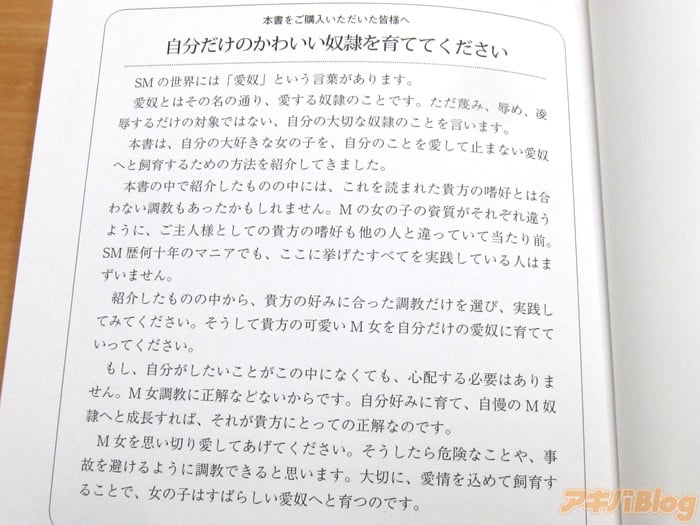 本書をご購入いただいた皆様へ
自分だけのかわいい奴隷を育ててください
SMの世界には「愛奴」という言葉があります。
愛奴とはその名の通り、愛する奴隷のことです。ただ蔑み、辱め、凌
辱するだけの対象ではない、自分の大切な奴隷のことを言います。
本書は、自分の大好きな女の子を、自分のことを愛して止まない愛奴
へと飼育するための方法を紹介してきました。
本書の中で紹介したものの中には、これを読まれた貴方の嗜好とは合
わない調教もあったかもしれません。Mの女の子の資質がそれぞれ違う
ように、ご主人様としての貴方の嗜好も他の人と違っていて当たり前。
SM歴何十年のマニアでも、ここに挙げたすべてを実践している人はま
ずいません。
紹介したものの中から、貴方の好みに合った調教だけを選び、実践し
てみてください。そうして貴方の可愛いM女を自分だけの愛奴に育てて
いってください。
もし、自分がしたいことがこの中になくても、心配する必要はありま
せん。M女調教に正解などないからです。自分好みに育て、自慢のM奴
隷へと成長すれば、それが貴方にとっての正解なのです。
M女を思い切り愛してあげてください。そうしたら危険なことや、事
故を避けるように調教できると思います。大切に、愛情を込めて飼育す
ることで、女の子はすばらしい愛奴へと育つのです。
アキバBlog